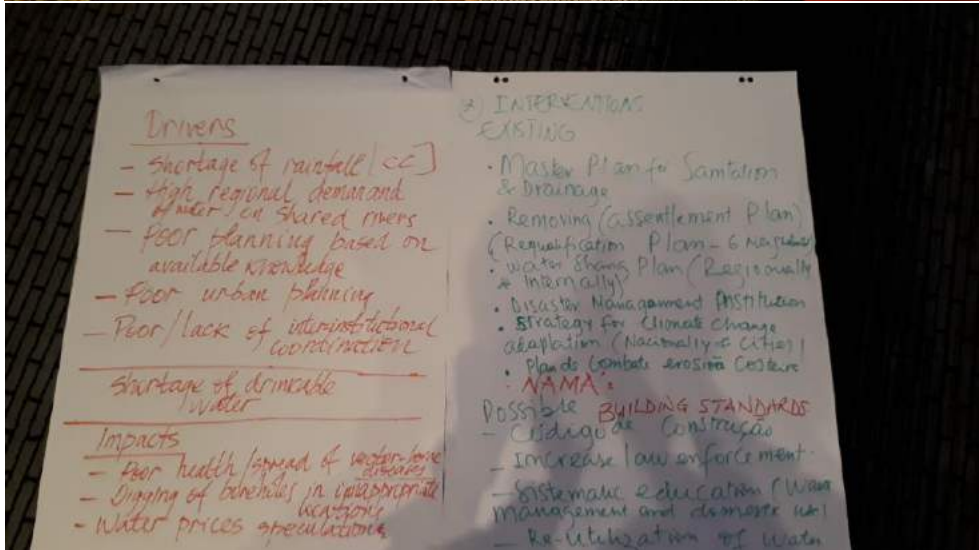 Drivers
- Shortage of rainfall [CC]
- High regional demand
of water / on shared rivers
- Poor planning based on
available knowledge
- Poor urban planning
- Poor/lack of interinstitutional
coordination
Shortage of drinkable
water
Impacts
- Poor health/spread of vector-borne
diseases
- Digging of boreholes in inappropriate
locations
- Water prices speculations
3) INTERVENTIONS
EXISTING
• Master Plan for Sanitation
& Drainage
• Removing (assentlement Plan)
(Requalification Plan - 6
• Water Sharing Plan (Regionally
& Internally)
• Disaster Management Institution
• Strategy for Climate Change
adaptation (Nacionally & Cities)
• Plan do Combate erosión Costeira
• NAMA's
Possible BUILDING STANDARDS
- Código de Construção
- Increase law enforcement.
- Sistematic education (Water
management and domestic use)
- Re-utilization of water